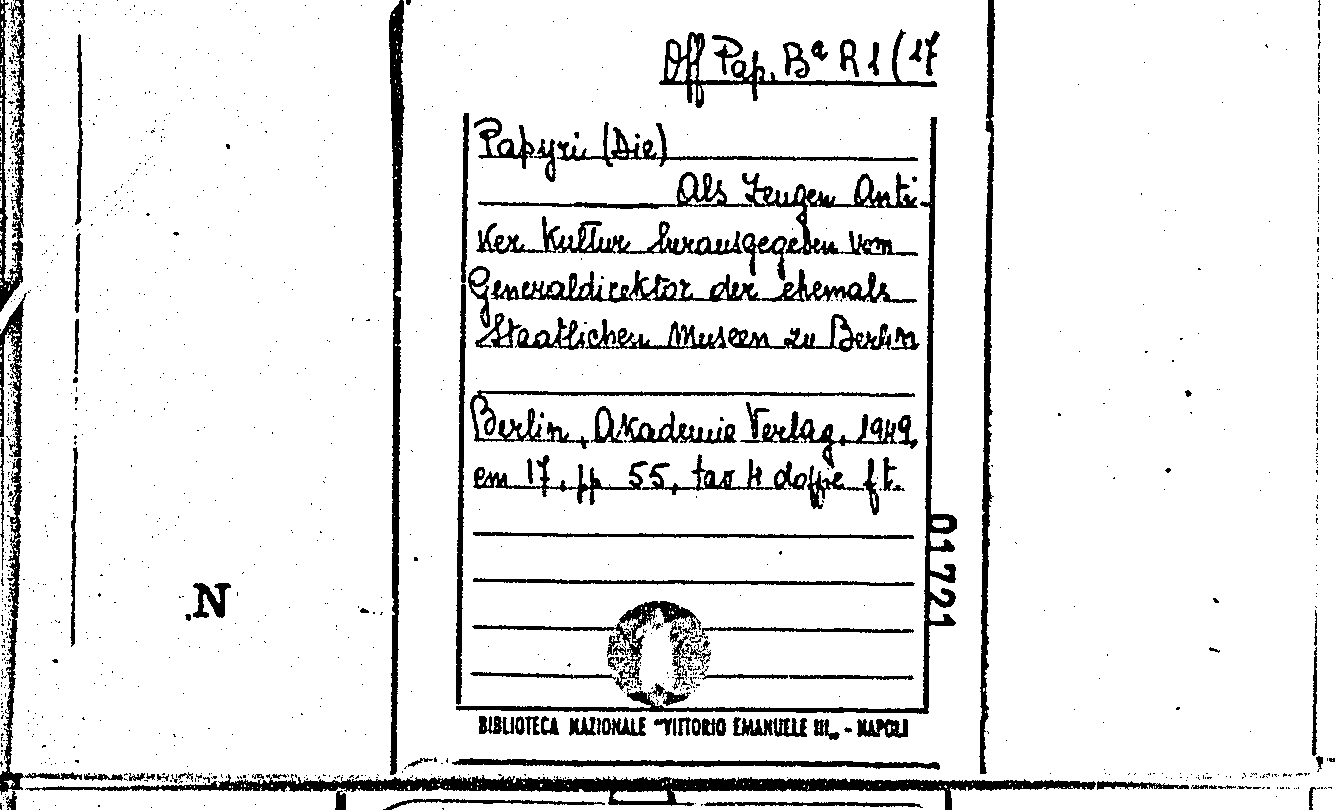 Off Pap. Bª R 1 (17
Papyri (Die)
Als Zeugen Anti-
Ker Kultur herausgegeben vom
Generaldirektor der ehemals
Staatlichen Museen zu Berlin
Berlin, Akademie Verlag, 1949,
cm 17, pp 55, tav 4 doppie f.t.
01721
.N
BIBLIOTECA NAZIONALE "VITTORIO EMANUELE III„ - NAPOLI